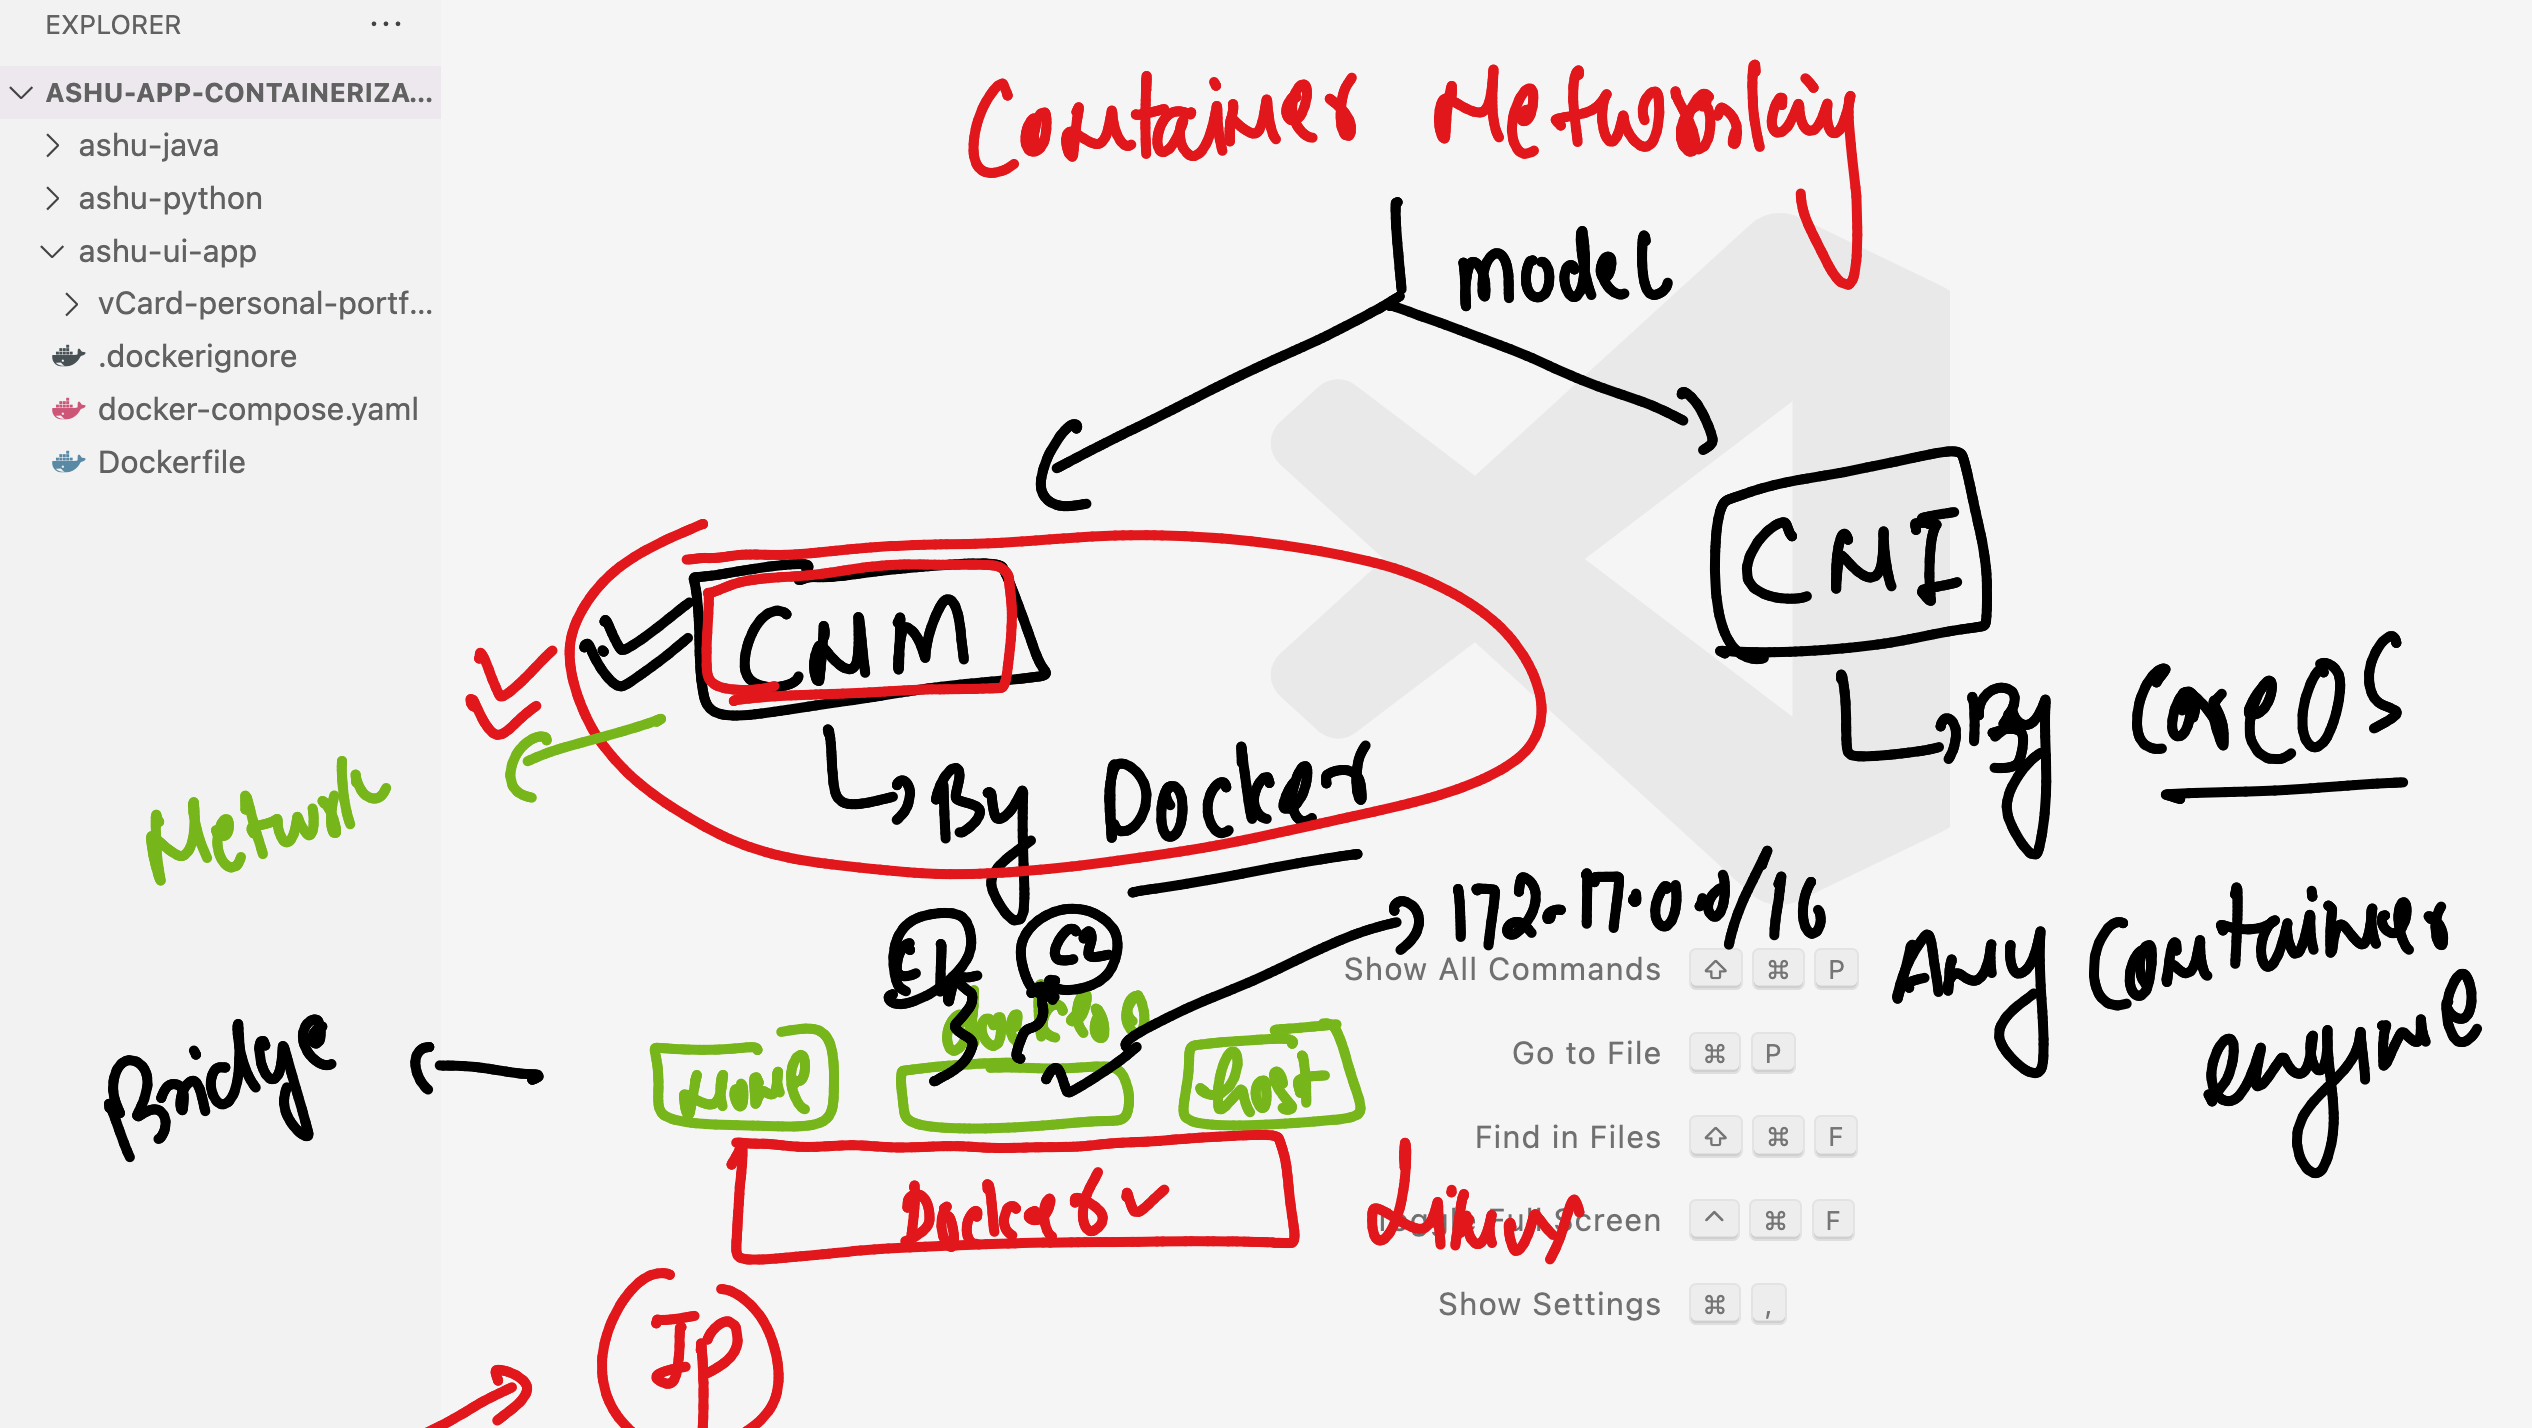 EXPLORER
ASHU-APP-CONTAINERIZA...
ashu-java
ashu-python
ashu-ui-app
vCard-personal-portf...
.dockerignore
docker-compose.yaml
Dockerfile
Container Networking
model
CNM
CNI
By Docker
By CoreOS
Any Container
engine
Network
C1
C2
172.17.0.0/16
Bridge
None
host
Docker
Linux
IP
Show All Commands ⇧ ⌘ P
Go to File ⌘ P
Find in Files ⇧ ⌘ F
Toggle Full Screen ^ ⌘ F
Show Settings ⌘ ,